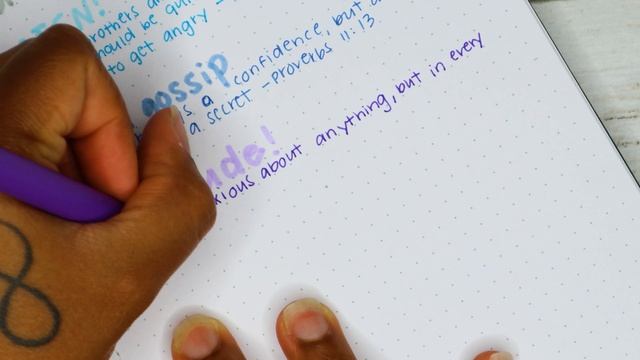 EN!
rothers an
hould be qui
to get angry -
gossip
s a confidence, but a
a secret - Proverbs 11:13
ude!
xious about anything, but in every